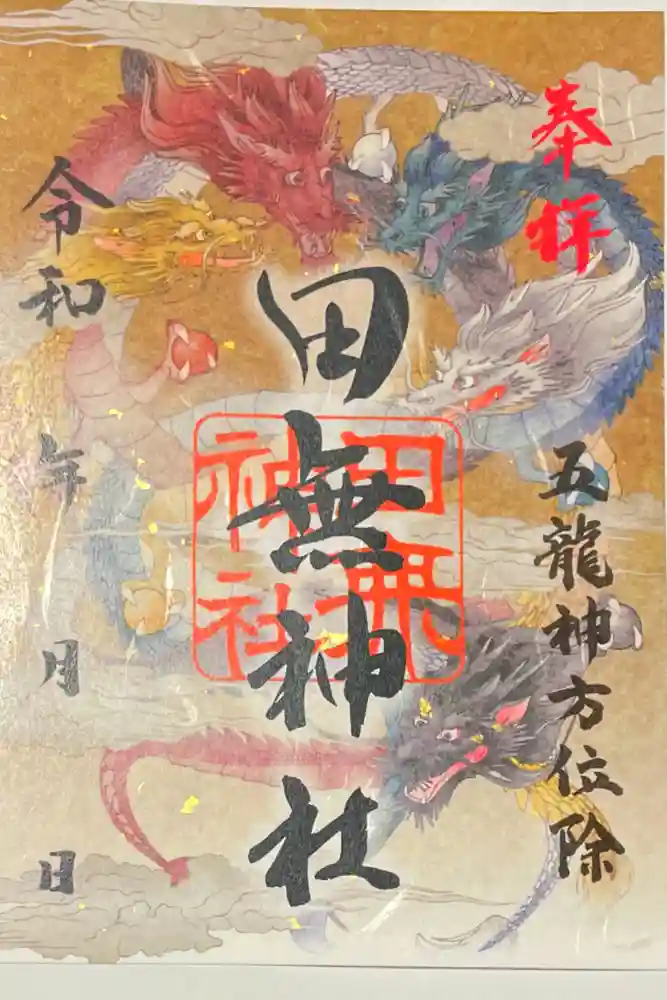 奉拝
五龍神方位除
田無神社
田無神社
令和 年 月 日